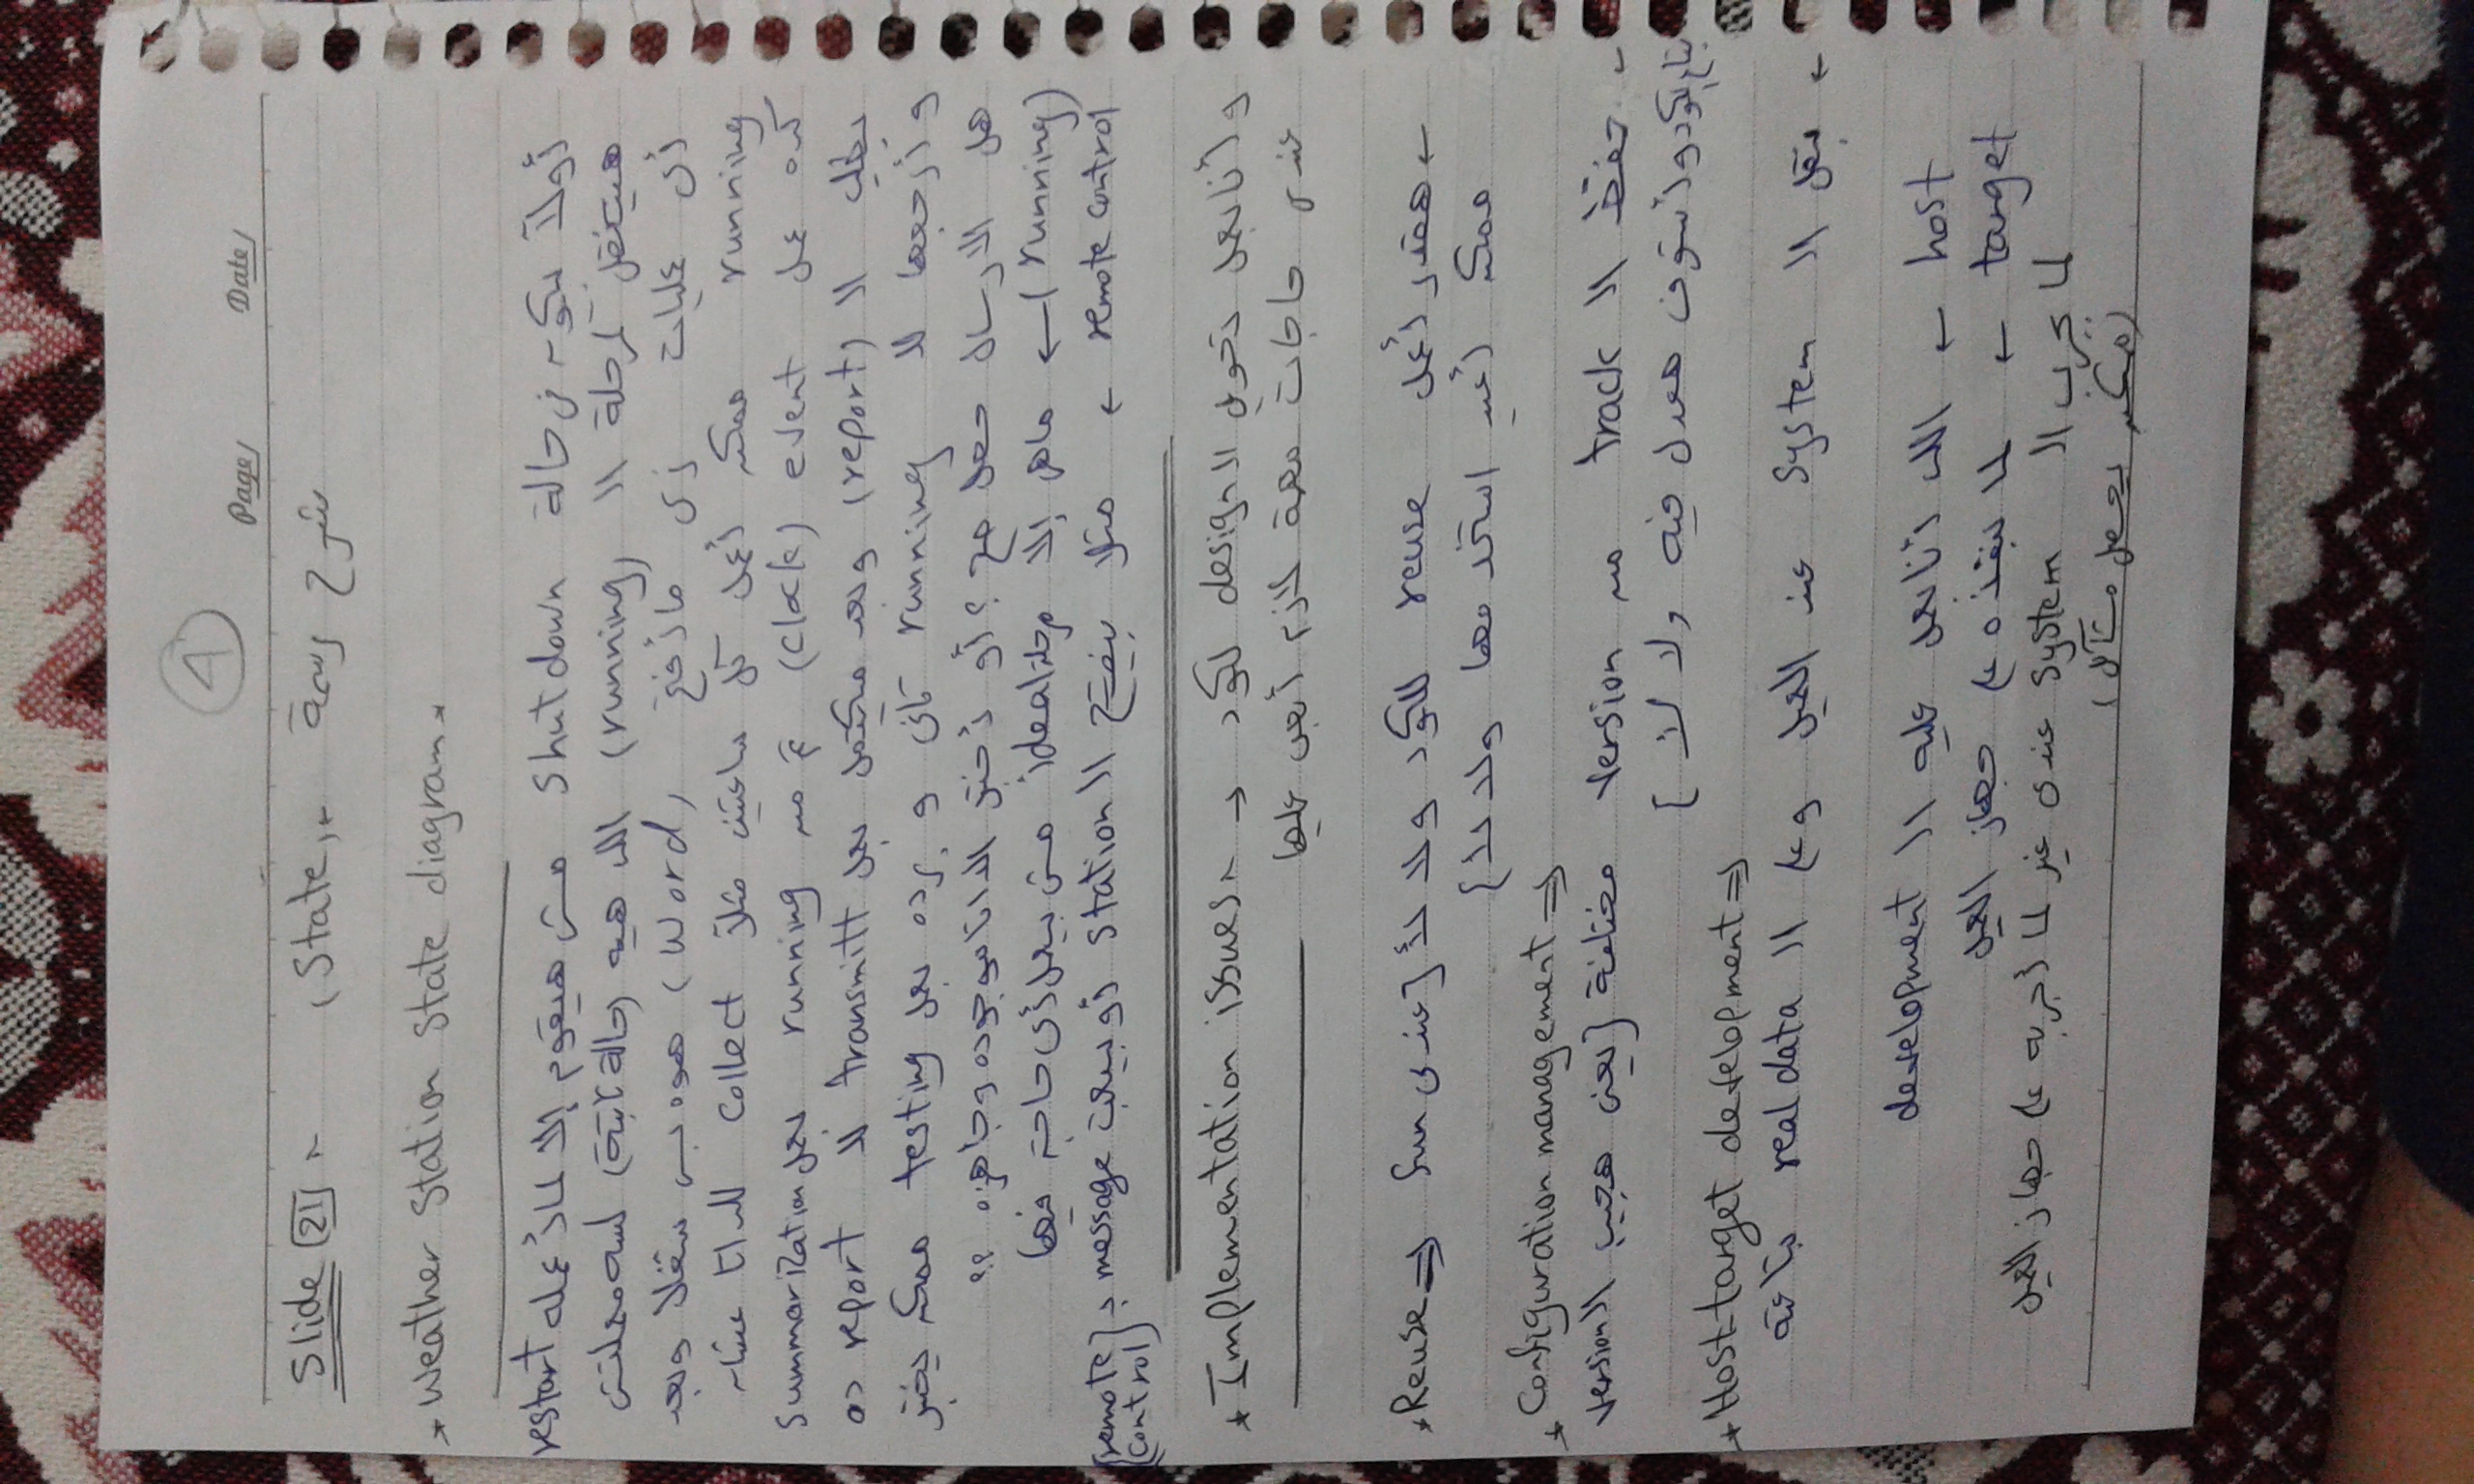 4
Page/ Date/
Slide [21] شرح رسمة (State)
* Weather Station State diagram *
أولاً بيكون في حالة Shutdown مش هيقوم إلا لما أعمله restart
هيتنقل لمرحلة الـ (running) اللى هيه (حالة ثابتة) لسه معملتش
أى عمليات زى ما أفتح (Word) هوه بس شغال وبعد
running ممكن أعمل كل ساعتين مثلاً collect للداتا عشان
كده عمل event (clock) ثم من running بعمل summarization
يطلب الـ (report) وبعد ميكتمل بعمل transmitt للـ report ده
وأرجعها للـ running تانى و برده بعمل testing ممكن يختبر
هل الارسال حصل صح ؟ أو أختبر الداتا موجوده وجاهزه ؟؟
(running) ← ماهى إلا مرحلة ideal مش بيعمل أى حاجة فيها
remote control ← مثلا بيفتح الـ station أو بيبعت message بـ {remote control}
* Implementation issues → وأنا بعمل تحويل الـ design لكود
عندى حاجات مهمة لازم أبص عليها
* Reuse ⇒ ← هقدر أعمل reuse للكود ولا لأ [عندى fun
ممكن أعيد استخدمها ولا لأ]
* Configuration management ⇒
← حفظ الـ track من version مختلفة [يعنى هجيب الـ version
بتاع الكود وأشوف هعدل فيه ولا لأ]
* Host-target development ⇒
← بنقل الـ system عند العميل وعلى الـ real data بتاعته
host ← اللى أنا بعمل عليه الـ development
target ← لما بنفذه على جهاز العميل
لما بجرب الـ system عندى غير لما أجربه على جهاز العميل
(ممكن يحصل مشاكل)